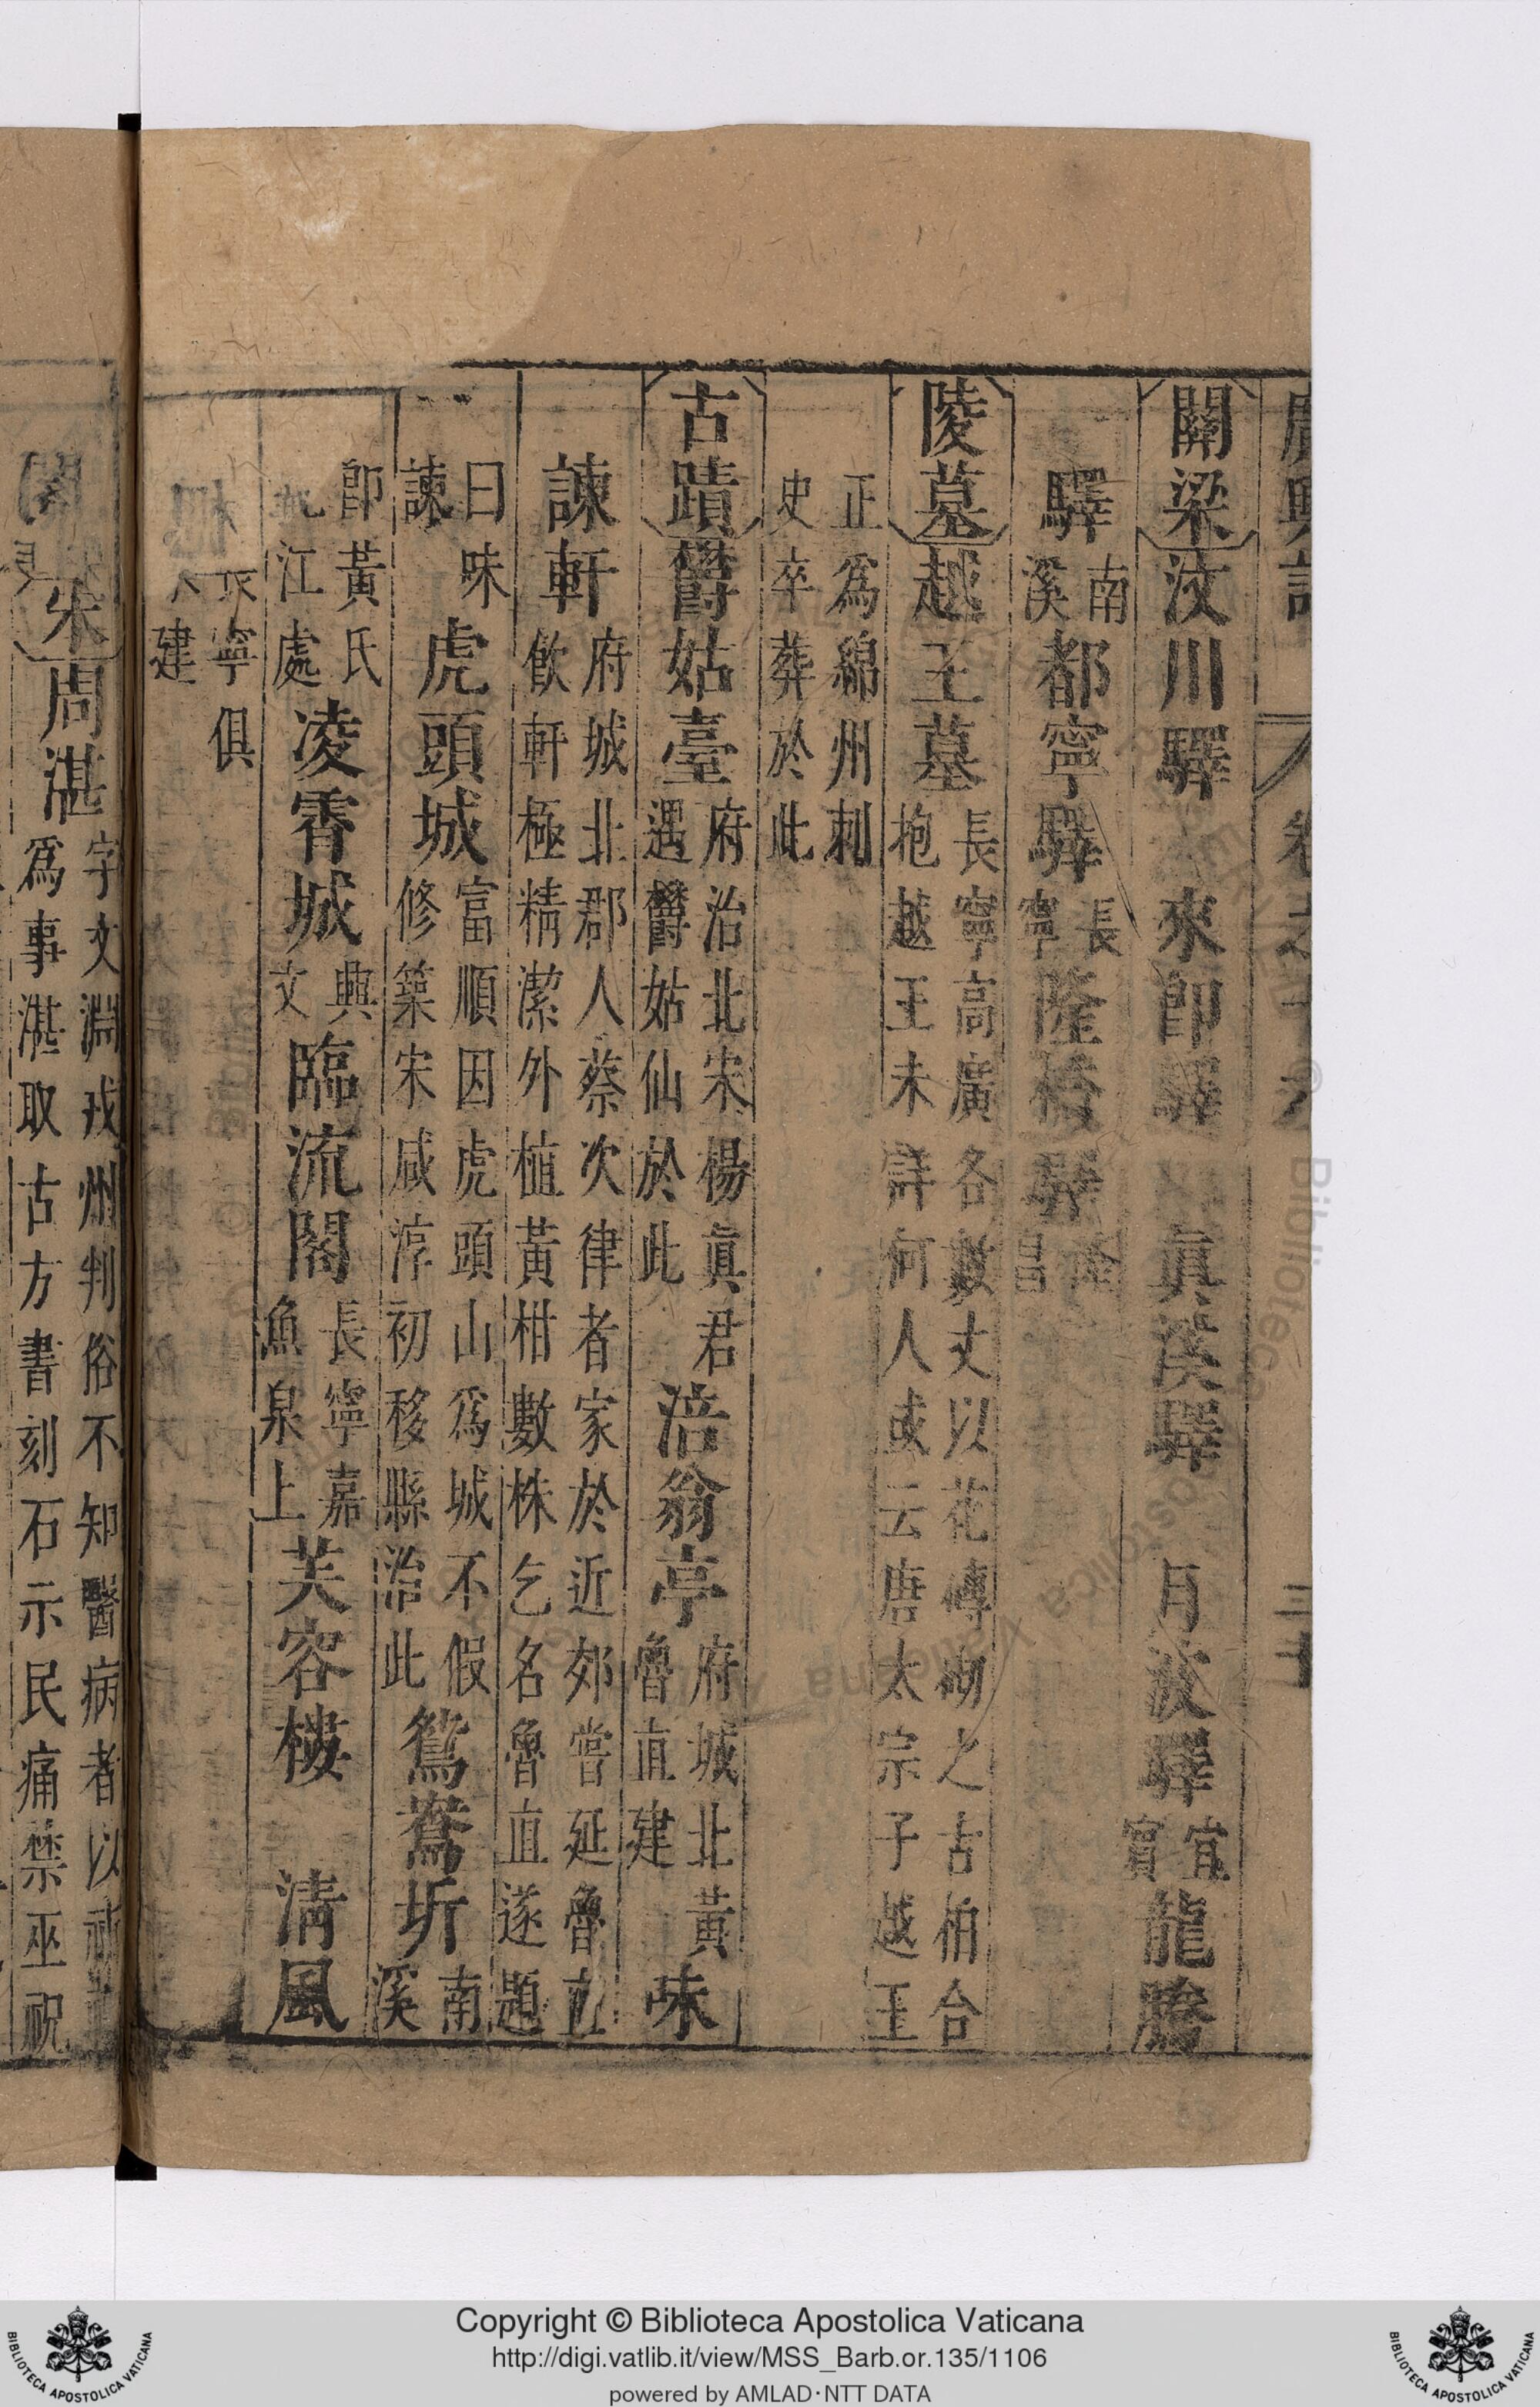 廣輿記 卷之十六 三十
關梁 汶川驛 來卽驛 真溪驛 月波驛 宜賓 龍騰
驛 南溪 都寧驛 長寧 隆橋驛 隆昌
陵墓 越王墓 長寧高廣各數丈以花磚砌之古柏合抱越王未詳何人或云唐太宗子越王
正爲綿州刺史卒葬於此
古蹟 欝姑臺 府治北宋楊眞君遇欝姑仙於此 涪翁亭 府城北黃魯直建 味
諫軒 府城北郡人蔡次律者家於近郊嘗延魯直飲軒極精潔外植黃柑數株乞名魯直遂題
曰味諫 虎頭城 富順因虎頭山爲城不假修築宋咸淳初移縣治此 鴛鴦圻 南溪
卽黃氏 江處 凌霄城 興文 臨流閣 長寧嘉魚泉上 芙容樓 清風
寧俱建
宋 周湛 字文淵戎州判俗不知醫病者以祈
爲事湛取古方書刻石示民痛禁巫祝
Copyright © Biblioteca Apostolica Vaticana
http://digi.vatlib.it/view/MSS_Barb.or.135/1106
powered by AMLAD·NTT DATA
BIBLIOTECA APOSTOLICA VATICANA
BIBLIOTECA APOSTOLICA VATICANA